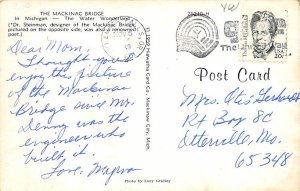 THE MACKINAC BRIDGE
In Michigan — The Water Wonderland
"Dr. Steinman, designer of the Mackinac Bridge
pictured on the opposite side, was also a renowned
poet."
Dear Mom,
Thought you'd
enjoy this picture
of the Mackinac
Bridge since Mr.
Denny was the
engineer who
built it.
Love,
Photo by Lucy Gridley
Mackinac City, Mich.
Post Card
Mrs. Otis
Rt Box 8C
Otterville, Mo.
65348